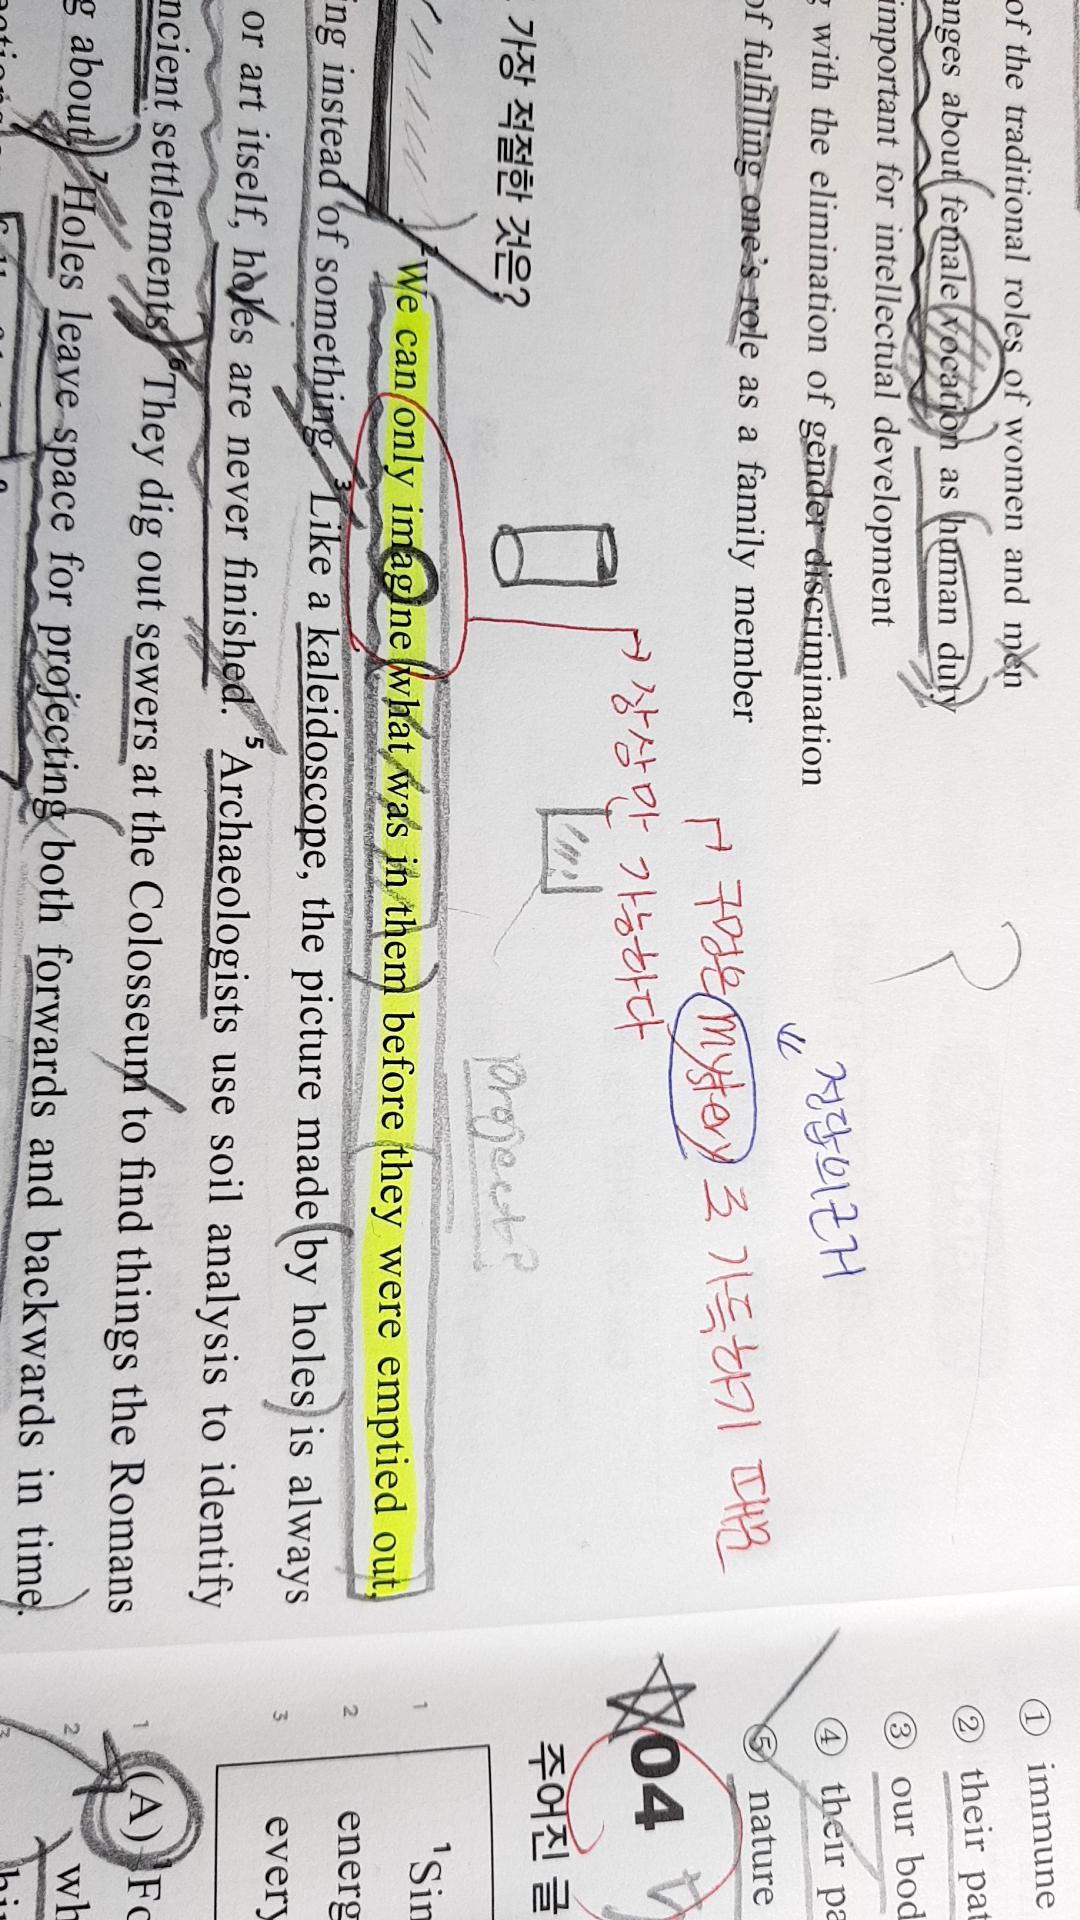 of the traditional roles of women and men
anges about female vocation as human duty
important for intellectual development
g with the elimination of gender discrimination
of fulfilling one's role as a family member
정답의 근거
구멍은 mystery로 가득하기 때문
상상만 가능하다
가장 적절한 것은?
project?
2We can only imagine what was in them before they were emptied out,
ing instead of something. 3Like a kaleidoscope, the picture made by holes is always
or art itself, holes are never finished. 5Archaeologists use soil analysis to identify
ncient settlements. 6They dig out sewers at the Colosseum to find things the Romans
g about. 7Holes leave space for projecting both forwards and backwards in time.
① immune
② their pat
③ our bod
④ their pa
⑤ nature
04
주어진 글
1
1Sin
2
energ
3
every
1
(A) 1Fo
2
wh